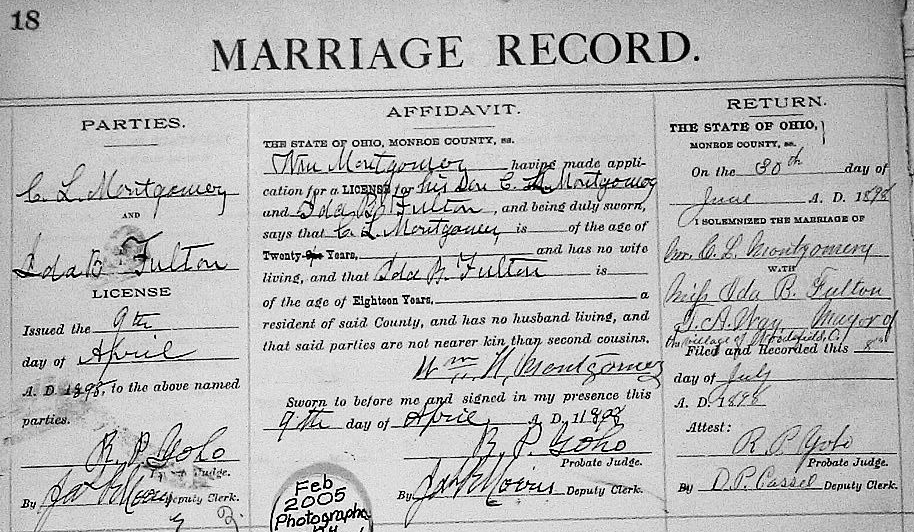 18
MARRIAGE RECORD.
PARTIES.
C. L. Montgomery
AND
Ida B Fulton
LICENSE
Issued the 9th
day of April
A. D. 1898, to the above named
parties.
R. P. Yoho
Judge.
By Jas Morris Deputy Clerk.
AFFIDAVIT.
THE STATE OF OHIO, MONROE COUNTY, ss.
Wm Montgomery having made appli-
cation for a LICENSE for his Son C. L. Montgomery
and Ida B. Fulton, and being duly sworn,
says that C. L. Montgomery is of the age of
Twenty-One Years, and has no wife
living, and that Ida B. Fulton is
of the age of Eighteen Years, a
resident of said County, and has no husband living, and
that said parties are not nearer kin than second cousins.
Wm. H. Montgomery
Sworn to before me and signed in my presence this
9th day of April, A. D. 1898
R. P. Yoho
Probate Judge.
By Jas Morris Deputy Clerk.
Feb
2005
Photographe
RETURN.
THE STATE OF OHIO,
MONROE COUNTY, ss.
On the 30th day of
June A. D. 1898
I SOLEMNIZED THE MARRIAGE OF
Mr. C. L. Montgomery
WITH
Miss Ida B. Fulton
Mayor of
the village of Woodsfield, O.
Filed and Recorded this 8th
day of July
A. D. 1898
Attest:
R. P. Yoho
Probate Judge.
By D. P. Cassel Deputy Clerk.